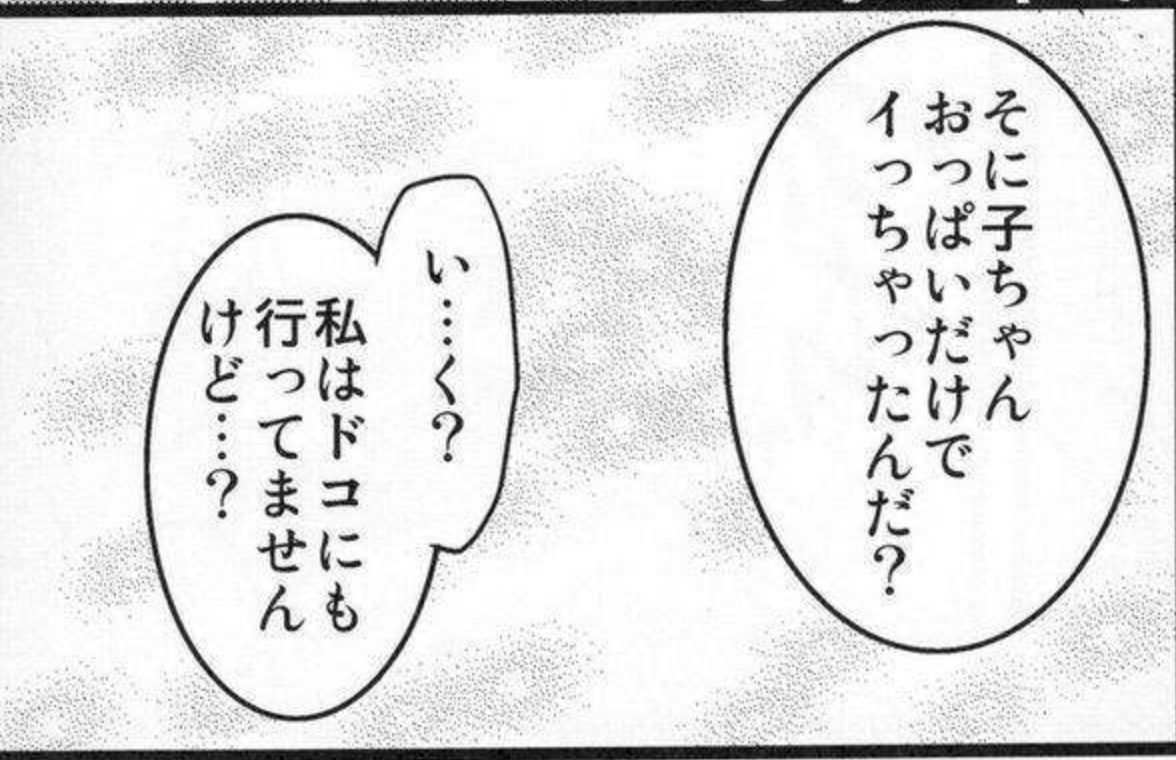 そに子ちゃん
おっぱいだけで
イっちゃったんだ？
い…く？
私はドコにも
行ってません
けど…？